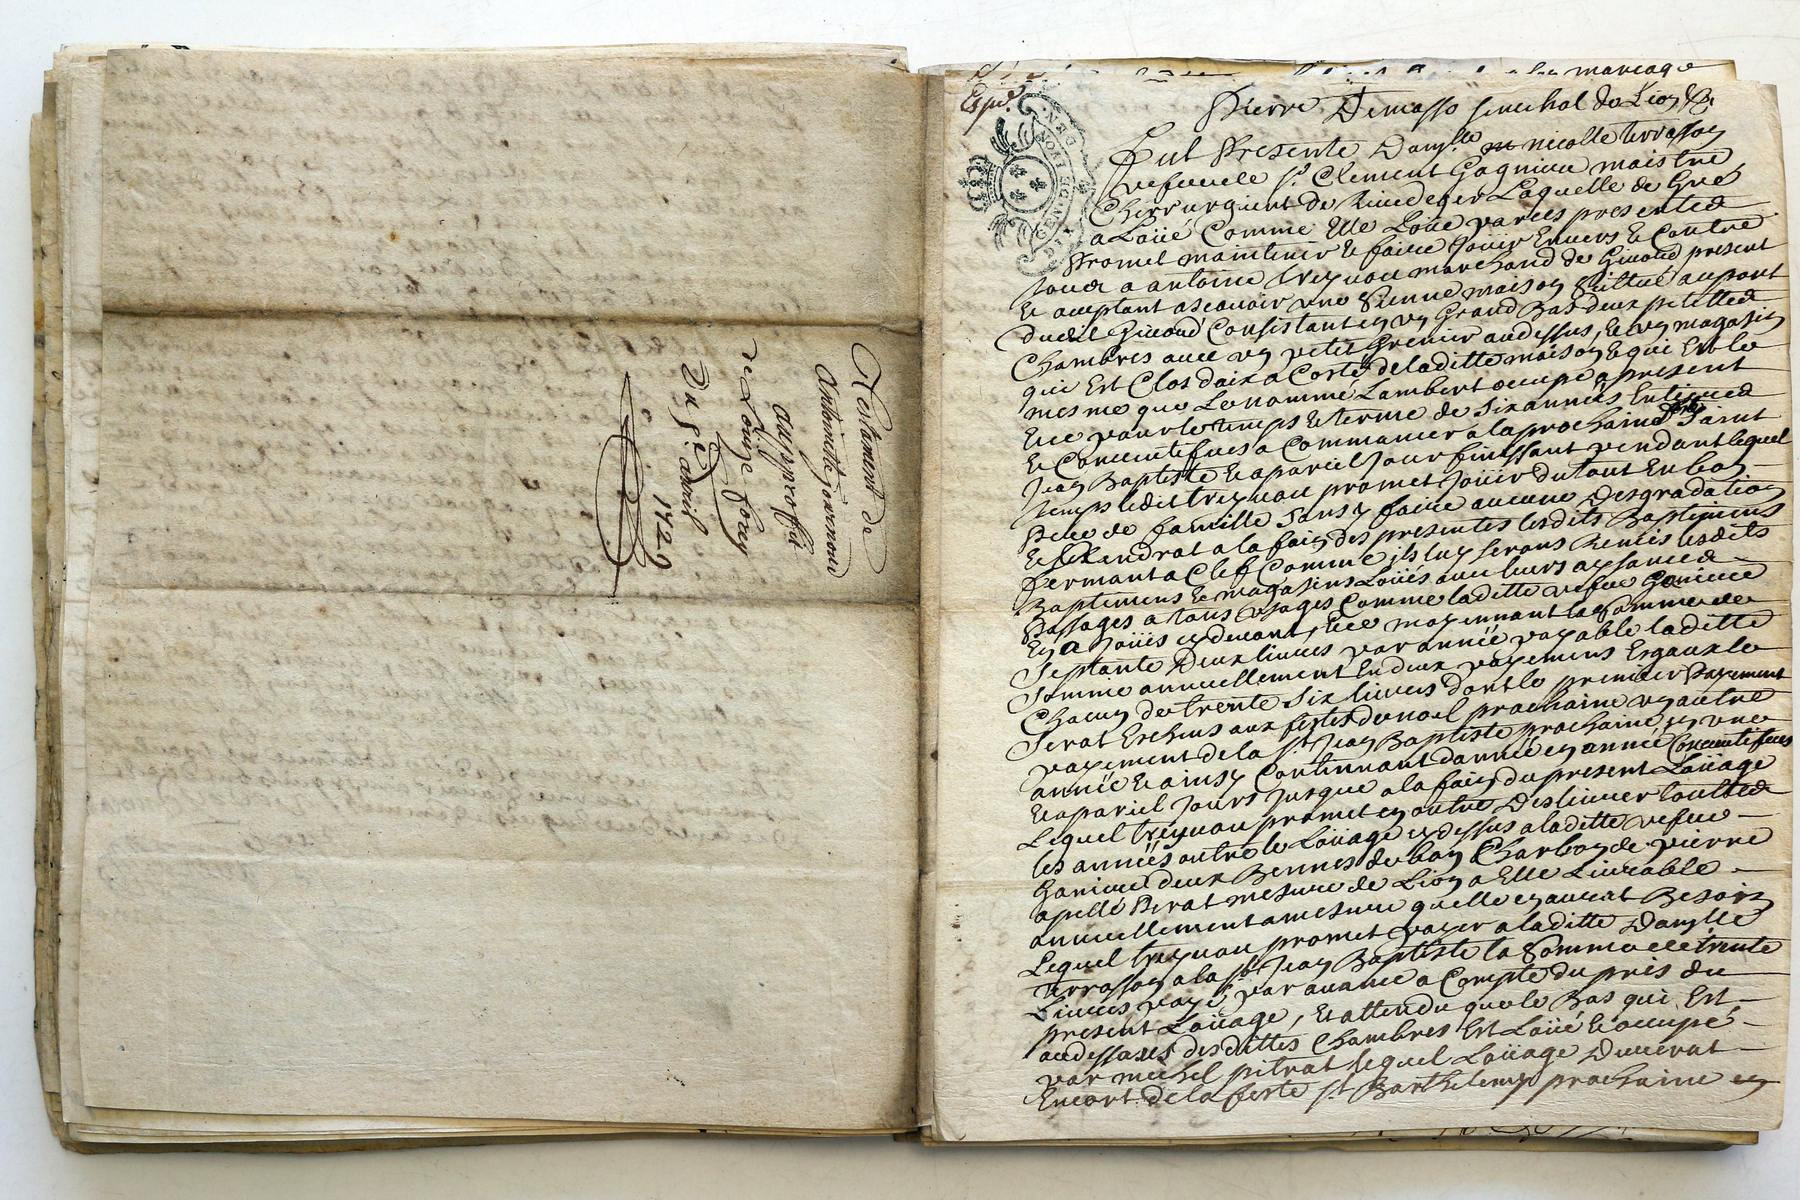 Testament de
antoinette jouvenou
au proffit
de Louize forey
Du 5e. avril
1729
mareage
Expd.
GENER DE LYON
Fut Presente Damlle nicolle terrasson
vefue de sr. Clement Gagnieu maistre
Chirurgient de Rivedegier Laquelle de Gré
a Loüé Comme Elle Loüe par ces presentes
Promet maintenir & faire Joüir Envers & Contre
tous a antoine treynau marchand de Givord present
& acceptant ascavoir une Sienne maison Scittue au port
dudit Givord Consistant en un Grand Bas deux petittes
Chambres avec un petit Grenier audessus, & un magasin
qui Est Clos daix a Costé de laditte maison & qui Est le
mesme que Le nommé Lambert occupe a present
Ece pour le temps & terme de six années Entieres
& Consecutifues a Commancer a la prochaine feste Saint
Jean Baptiste & a pareil Jour finissant pendant lequel
temps ledit treynau promet Joüir du tout En bon
Pere de famille Sans y faire aucune Desgradation
& Randrat a la fain des presentes lesdits Baptimens
fermant a Clef Comme ils luy serons Remis lesdits
Baptimens & magasins Loüés avec leurs aysances
Passages a tous Usages Comme laditte vefue Ganieu
En a Joüis cy devant, Ece moyennant la Somme de
Septante Deux livres par année payable laditte
Somme annuellement En deux payemens Esgaux le
Chacun de trente Six livres dont le premier Payement
Serat Escheus aux festes de noel prochaine un autre
payement de la st. Jean Baptiste prochaine en une
année & ainsy Continnant dannée en année Consecutifues
& a pariel Jours Jusque a la fain du present Loüage
Lequel treynau promet en outre Deslivrer touttes
les années outre le Loüage cy dessus a laditte vefue
Ganieu deux Bennes de bon Charbon de pierre
apellé Perat mesure de Lion a Elle Livrable
annuellement a mesure quelle en aurat Besoin
Lequel treynau promet payer a laditte Damlle
terrasson a la st. Jean Baptiste la Somme de trente
Livres payé par avance a Compte du pris du
present Loüage, & attendu que le Bas qui Est
audessous desdittes Chambres Est Loüé & occupé
par michel pitrat lequel Loüage Durerat
Encort de la feste st. Barthelemy prochaine en